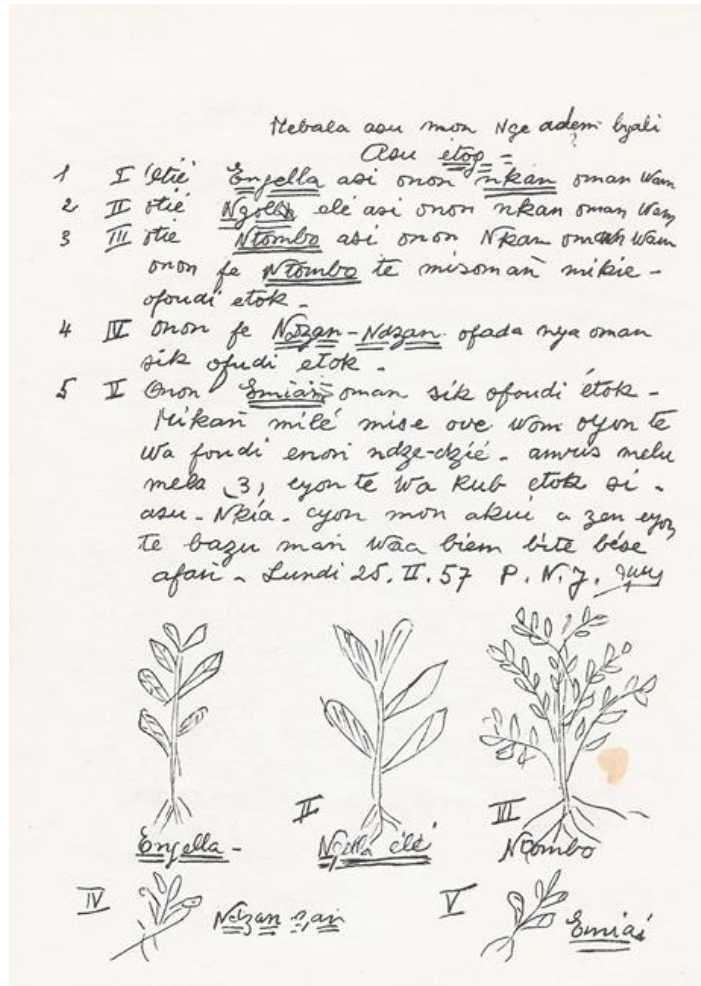 Mebala asu mon Nge adem byali
Asu etog =
1 I 'etié Engella asi onon nkan oman wam
2 II otié Ngolla elé asi onon nkan oman wam
3 III otie Ntombo asi onon Nkan oman wam
onon fe Ntombo te misomañ mikie -
ofoudi etok -
4 IV onon fe Ndzan-Ndzan ofada nya oman
sik ofudi etok -
5 V Onon Emiañ oman sik ofoudi étok -
Mikañ milé mise ove wom oyon te
wa foudi enoñ ndze-dzié - amvus melu
mela (3) eyon te wa kub etok si -
asu - Nkía - eyon mon akui a zen eyon
te bazu mañ waa biem bite bése
afañ - Lundi 25. II. 57 P. N. J.
Engella -
II
Ngolla élé
III
Ntombo
IV
Ndzan zañ
V
Emiañ